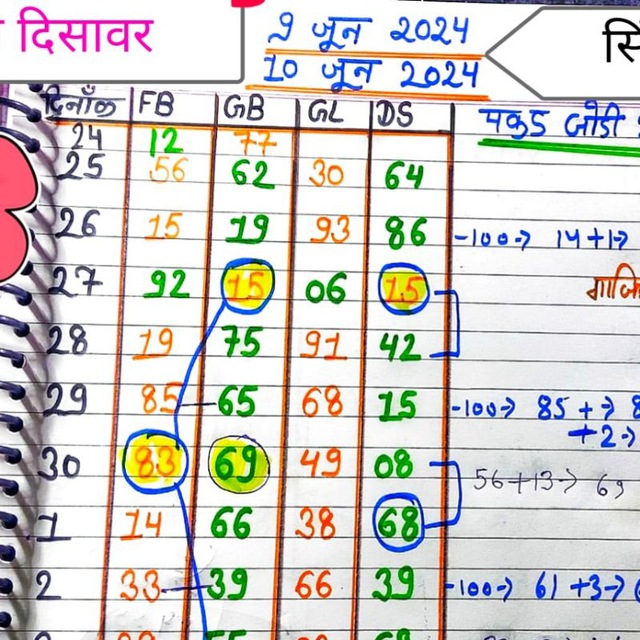 दिसावर
9 जून 2024
10 जून 2024
दिनाँक FB GB GL DS
पकड जोडी
24 12 77
25 56 62 30 64
26 15 19 93 86 -100→ 14+1→
27 92 15 06 15
28 19 75 91 42
29 85 65 68 15 -100→ 85+→ 8
+2→
30 83 69 49 08
56+13→ 69
1 14 66 38 68
2 33 39 66 39 -100→ 61+3→